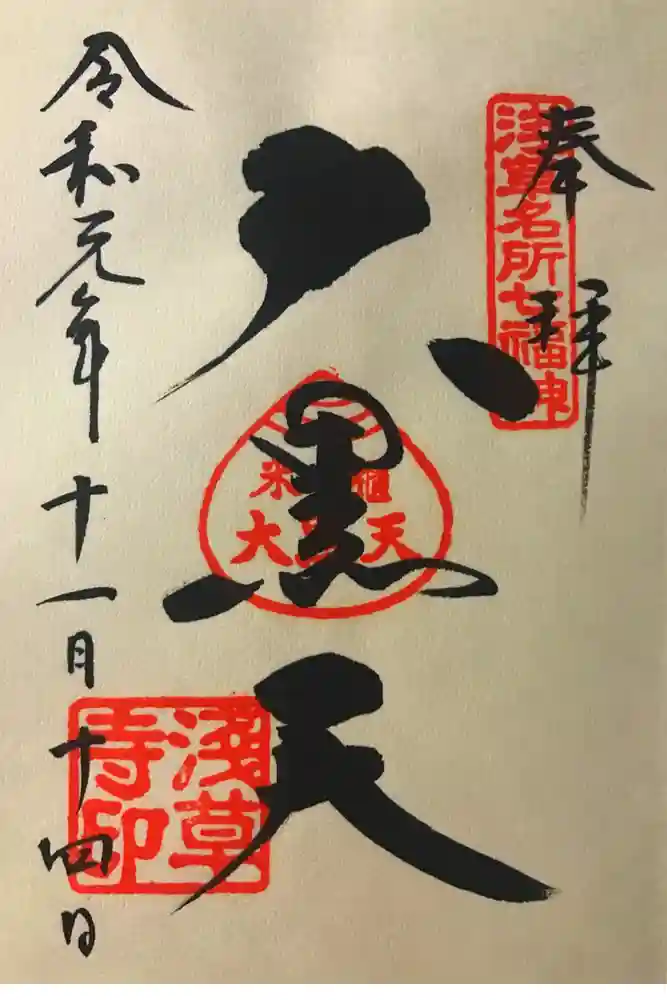 奉拝
浅草名所七福神
大黒天
米櫃
大黒天
浅草寺印
令和元年十一月十四日